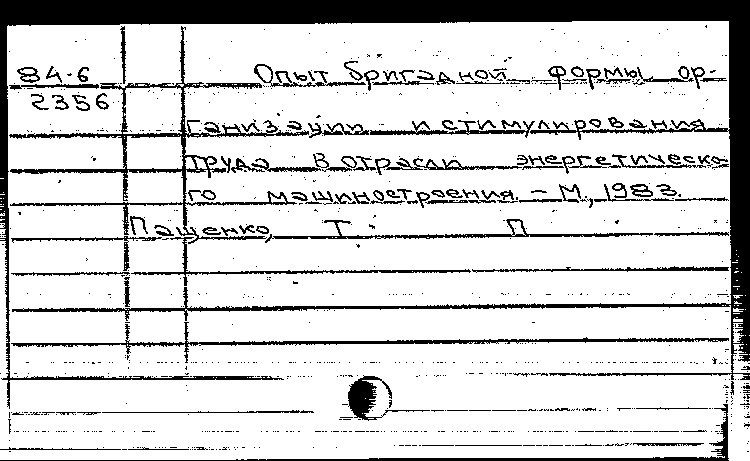 84-6 Опыт бригадной формы ор-
2356
ганизации и стимулирования
труда в отрасли энергетическо-
го машиностроения. – М., 1983.
Пащенко, Т. П